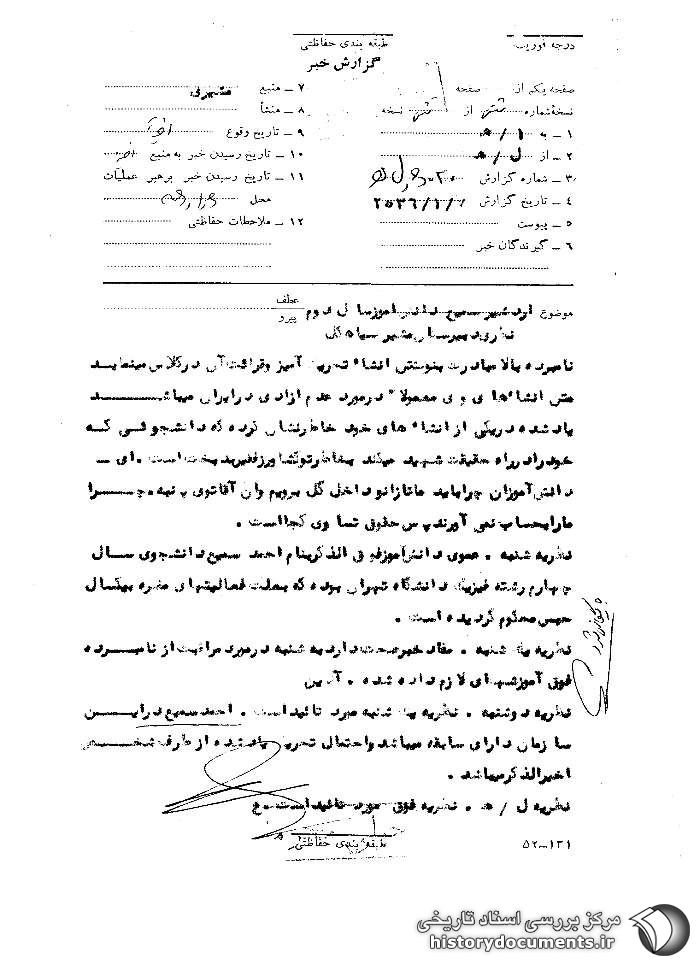 طبقه بندی حفاظتی
گزارش خبر
صفحه یکم از صفحه
نسخه شماره از نسخه
۱ – به
۲ – از
۳ – شماره گزارش
۴ – تاریخ گزارش
۵ – پیوست
۶ – گیرندگان خبر
۷ – منبع
۸ – منشأ
۹ – تاریخ وقوع
۱۰ – تاریخ رسیدن خبر به منبع
۱۱ – تاریخ رسیدن خبر برهبر عملیات
محل
۱۲ – ملاحظات حفاظتی
موضوع اردشیر سمیع دانش آموز سال دوم
نظری دبیرستان
عطف
پیرو
نامبرده بالا مبادرت بنوشتن انشاء تحریک آمیز وقرائت آن درکلاس مینماید
متن انشاءهای وی معمولا" درمورد عدم ازادی درایران میباشد
یادشده دریکی از انشاء های خود خاطرنشان کرده که دانشجوئی که
خودرا درراه حقیقت شهید میکند بخاطر توکشاورز فقیر بدبخت است . ای –
دانش آموزان چرا باید ما تا زانو داخل گل برویم وان آقا توی پنبه . چرا
مارا بحساب نمی آورند پس حقوق شما وی کجااست .
نظریه شنبه . عموی دانش آموز فوق الذکر بنام احمد سمیع دانشجوی سال
چهارم رشته فیزیک دانشگاه تهران بوده که بعلت فعالیتهای مضره بیکسال
حبس محکوم گردیده است .
نظریه یک شنبه . مفاد خبر صحت دارد به شنبه درمورد مراقبت از نامبرده
فوق آموزشهای لازم داده شده . آذین
نظریه دوشنبه . نظریه یک شنبه مورد تائید است . احمد سمیع دراین
سازمان دارای سابقه میباشد واحتمال تحریک یادشده از طرف شخص
اخیرالذکر میباشد .
نظریه ل / ه . نظریه فوق مورد تائید است . ع
طبقه بندی حفاظتی
۵۲–۱۳۱
مرکز بررسی اسناد تاریخی
historydocuments.ir